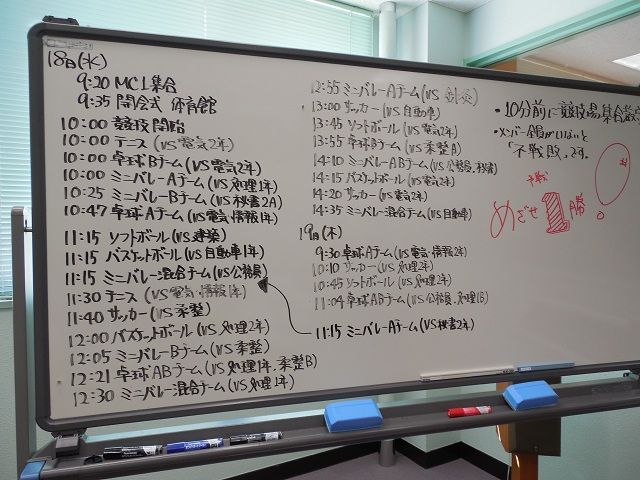 18日(水)
9:20 MC1集合
9:35 開会式 体育館
10:00 競技開始
10:00 テニス (VS電気2年)
10:00 卓球Bチーム(VS電気2年)
10:00 ミニバレーAチーム(VS処理1年)
10:25 ミニバレーBチーム(VS秘書2A)
10:47 卓球Aチーム(VS電気・情報1年)
11:15 ソフトボール(VS建築)
11:15 バスケットボール(VS自動車1年)
11:15 ミニバレー混合チーム(VS公務員)
11:30 テニス (VS電気・情報1年)
11:40 サッカー(VS柔整)
12:00 バスケットボール(VS処理2年)
12:05 ミニバレーBチーム(VS柔整)
12:21 卓球ABチーム(VS処理1年,柔整B)
12:30 ミニバレー混合チーム(VS処理1年)
12:55 ミニバレーAチーム(VS 針灸)
13:00 サッカー(VS自動車)
13:45 ソフトボール(VS電気2年)
13:55 卓球Bチーム(VS柔整A)
14:10 ミニバレーABチーム(VS公務員,秘書)
14:15 バスケットボール(VS電気2年)
14:20 サッカー(VS電気2年)
14:35 ミニバレー混合チーム(VS自動車)
19日(木)
9:30 卓球Aチーム(VS電気・情報2年)
10:10 サッカー(VS処理2年)
10:45 ソフトボール(VS処理2年)
11:04 卓球ABチーム(VS公務員,処理1B)
11:15 ミニバレーAチーム(VS秘書2年)
・10分前に競技場集合
・メンバー全員がいないと
「不戦敗」です。
めざせ1勝。